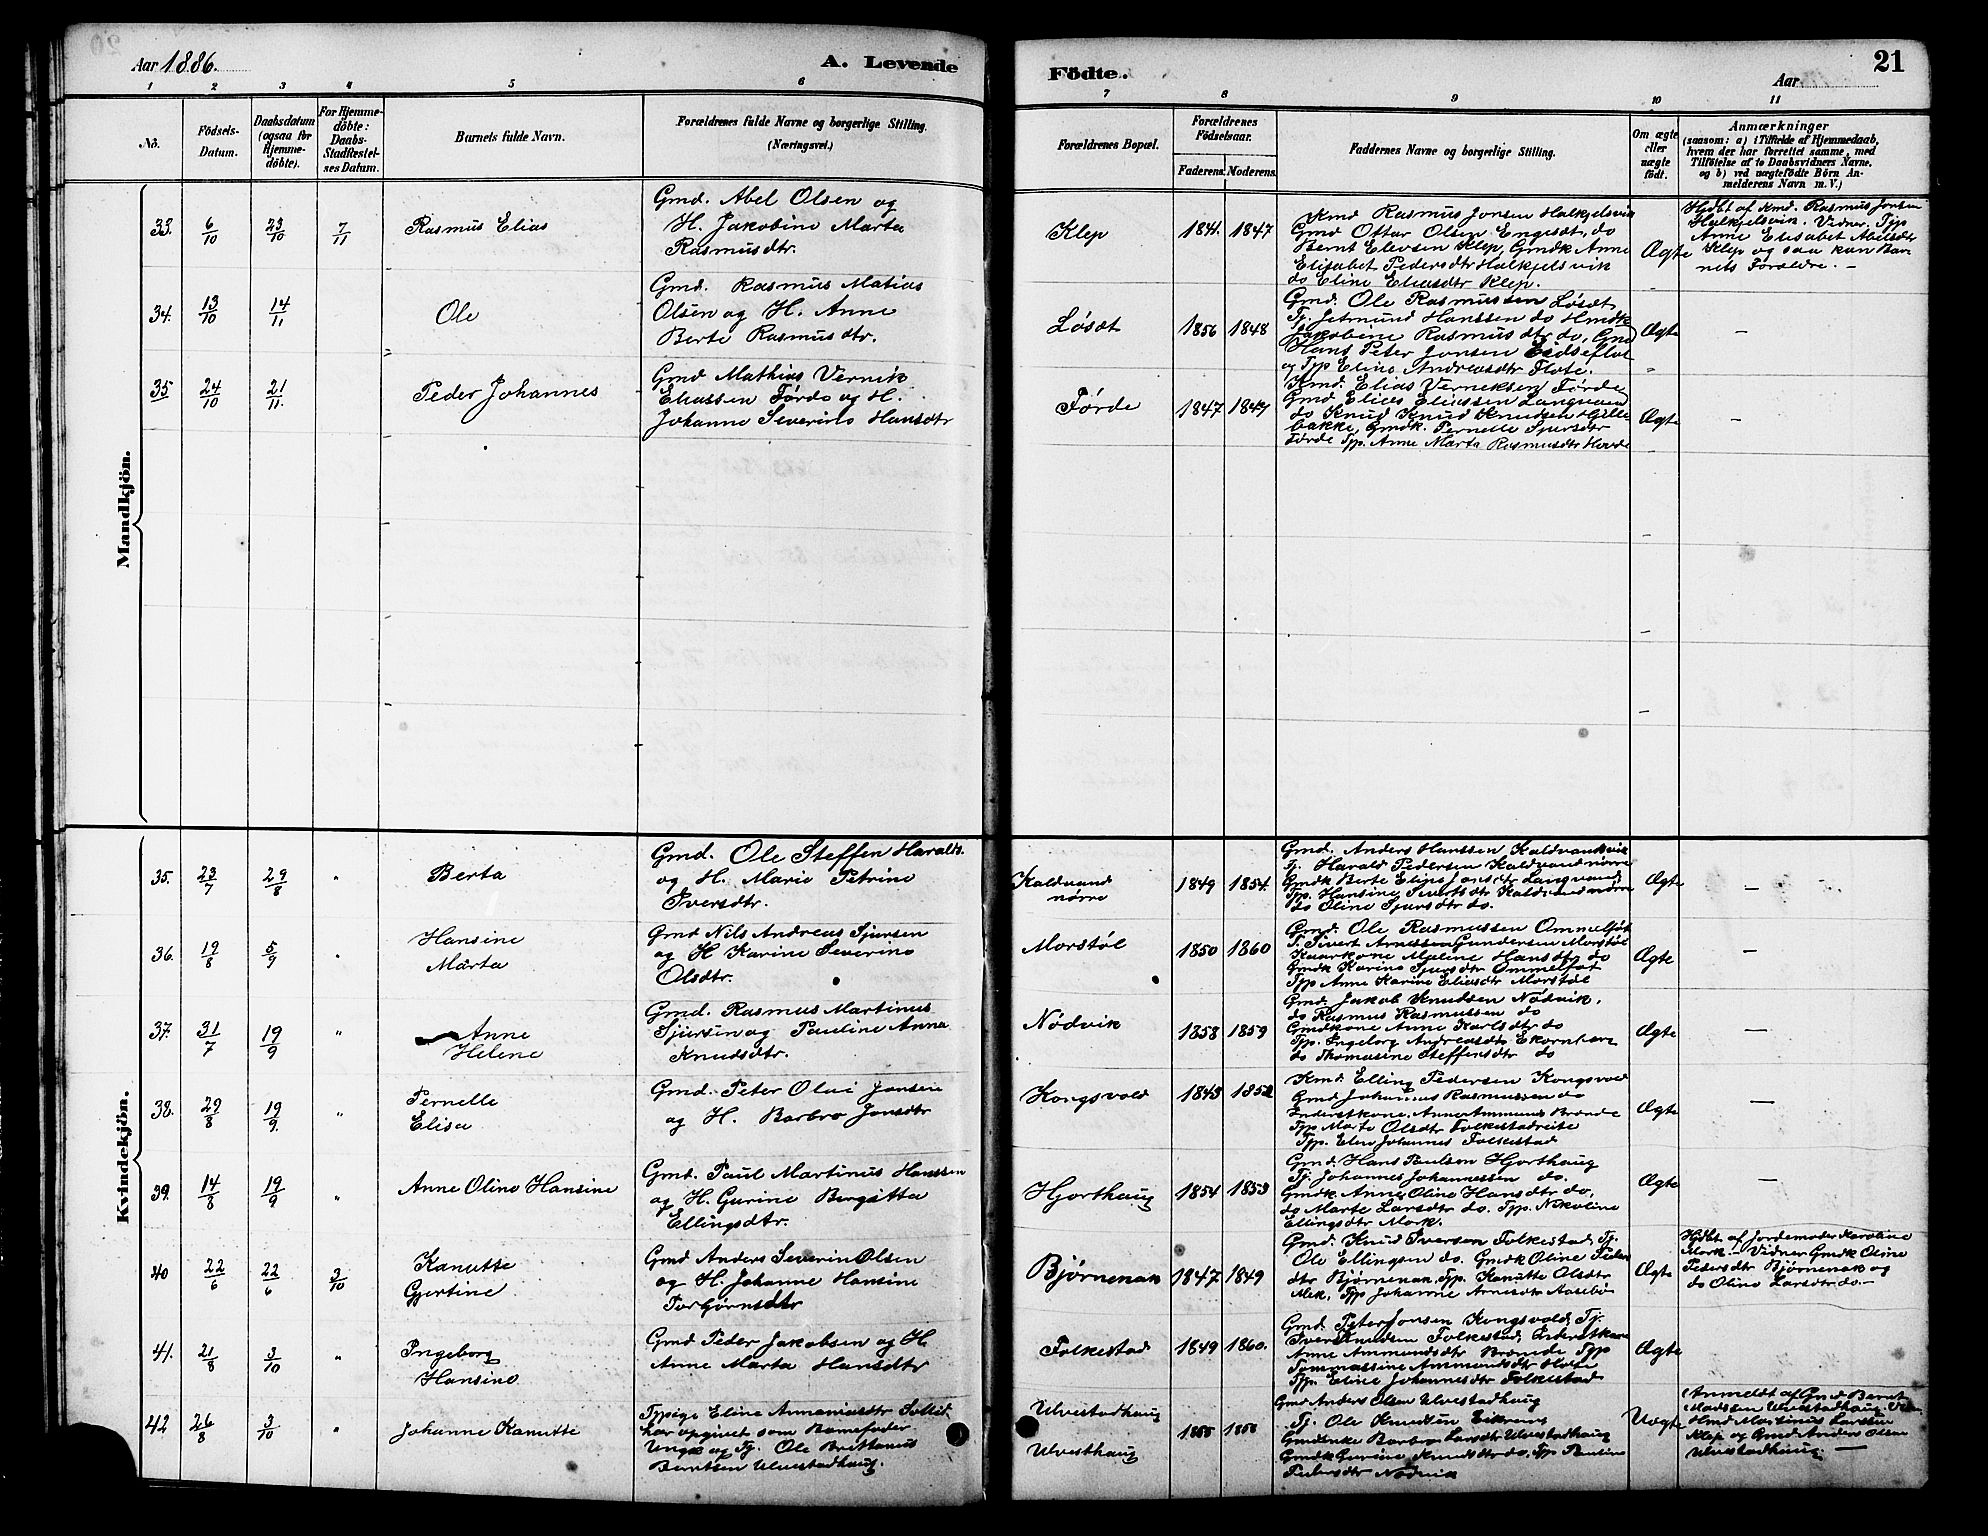 Aar 1886.
A. Levende
Födte.
Aar
21
1 2 3 4 5 6 7 8 9 10 11
No.
Födsels-
Datum.
Daabsdatum
(ogsaa for
Hjemme-
döbte).
For Hjemme-
döbte:
Daabs-
Stadfæstel-
ses Datum.
Barnets fulde Navn.
Forældrenes fulde Navne og borgerlige Stilling.
(Næringsvei.)
Forældrenes Bopæl.
Forældrenes
Födselsaar.
Faderens. Moderens.
Faddernes Navne og borgerlige Stilling.
Om ægte
eller
uægte
födt.
Anmærkninger
(saasom: a) i Tilfælde af Hjemmedaab,
hvem der har forrettet samme, med
Tilföielse af to Daabsvidners Navne,
og b) ved uægtefödte Börn An-
melderens Navn m. V.)
Mandkjön.
33. 6/10 23/10 7/11
Rasmus Elias
Gmd. Abel Olsen og
H. Jakobine Marta
Rasmusdtr.
Klep
1841. 1847
Kmd Rasmus Jonsen Halkjelsvik
Gmd Ottar Olsen Engesdt, do
Bernt Elevsen Klep, Gmdk Anne
Elisabet Pedersdtr Halkjelsvik
do Eline Eliasdtr Klep.
Ægte
Hdbt af Kmd. Rasmus Jonsen
Halkjelsvik. Vidner, Tjp
Anne Elisabet Abelsdtr
Klep og saa kun Bar-
nets Forældre. –
34. 13/10 14/11
Ole
Gmd. Rasmus Matias
Olsen og H. Anne
Berte Rasmusdtr.
Løsdt
1856 1848
Gmd. Ole Rasmussen Løsdt
Tj. Jetmund Hanssen do Hmdk
Jakobine Rasmusdtr do, Gmd
Hans Peter Jonsen Eidseflot
og Tjp Eline Andreasdtr Flote.
Ægte
–
35 24/10 21/11.
Peder Johannes
Gmd Mathias Vernik
Eliassen Førde og H.
Johanne Severine Hansdtr
Førde
1847 1847
Kmd. Elias Verniksen Førde
Gmd Elias Eliassen Langvand
do Knud Knud Knudsen Hille
bakke, Gmdk. Pernelle Sjursdtr
Førde Tjp. Anne Marta Rasmusdtr Hovde
Ægte
–
Kvindekjön.
35. 23/7 29/8 "
Berta
Gmd. Ole Steffen Haralds.
og H. Marie Petrine
Iversdtr.
Kaldvand
nørre
1849 1854.
Gmd. Anders Hanssen Kaldvandsvik
Tj. Harald Pedersen Kaldvand nørre
Gmdk Berte Elias Jonsdtr Langvand
Tjp. Hansine Sivertsdtr Kaldvand nørre
do Oline Sjursdtr do.
Ægte
–
36. 19/8 5/9 "
Hansine
Marta
Gmd Nils Andreas Sjursen
og H Karine Severine
Olsdtr.
Morstøl
1850 1860
Gmd. Ole Rasmussen Ommelfot
Tj. Sivert Arnessen Gundersen Morstøl
Kaarkone Maline Hansdtr do
Gmdk Karine Sjursdtr Ommelfot
Tjp Anne Karine Eliasdtr Morstøl
Ægte
–
37. 31/7 19/9 "
Anne
Helene
Gmd. Rasmus Martinus
Sjursen og Pauline Anna
Knudsdtr.
Nødvik
1858 1859
Gmd. Jakob Knudsen Nødvik.
do Rasmus Rasmussen do
Gmdkone Anne Karlsdtr do
Tjp. Ingeborg Andreasdtr Ekornhan
do Thomasine Steffensdtr do
Ægte
–
38. 29/8 19/9. "
Pernelle
Elisa
Gmd. Peter Olai Jonsen
og H. Barbro Jonsdtr
Kongsvold
1843 1852
Kmd. Elling Pedersen Kongsvold
Gmd Johannes Rasmussen do
Inderstkone. Anne Ammunds Brønde
Tjp Marte Olsdtr Folkestadreite
Tjp. Elen Johannes Folkestad
Ægte
–
39. 14/8 19/9 "
Anne Oline Hansine
Gmd. Paul Martinus Hanssen
og H. Gurine Bergitta
Ellingsdtr.
Hjorthaug
1854 1853
Gmd. Hans Paulsen Hjorthaug
Tj. Johannes Johannessen do.
Gmdk. Anne Oline Hansdtr do,
do Marte Larsdtr do. Tjp. Nikoline
Ellingsdtr Mork.
Ægte
–
40 22/6 22/6 3/10
Kanutte
Gjertine
Gmd Anders Severin Olsen
og H. Johanne Hansine
Torgjørnsdtr
Bjørnenak
1847 1849
Gmd. Knud Iversen Folkestad, Tj.
Ole Ellingsen do. Gmdk Oline Peders
dtr Bjørnenak, Tjp. Kanutte Olsdtr
Mek, Tjp Johanne Arnesdtr Aasebø
Ægte
Hjdbt. af Jordemoder Karoline
Mork. – Vidner Gmdk Oline
Pedersdtr Bjørnenak og
do Oline Larsdtr do. –
41. 21/8 3/10 "
Ingeborg
Hansine
Gmd Peder Jakobsen og H.
Anne Marta Hansdtr
Folkestad
1849 1860.
Gmd. Peter Jonsen Kongsvold, Tj.
Iver Knudsen Folkestad, Inderstkone
Anne Ammundsdtr Brønde Tjp
Tommassine Ammundsdtr Holte
Tjp. Eline Johannesdtr Folkestad
Ægte
42 26/8 3/10 "
Johanne Kanutte
Tjpige Eline Annaniasdtr
har opgivet som Barnefader
Ungk og Tj. Ole Brittanus
Berntsen Ulvestadhaug.
Ulvestadhaug
Ulvesthaug
1855 1858
Gmd Anders Olsen Ulvestadhaug
Tj. Ole Knudsen Eikrem
Gmdenke Barbro Larsdtr Ulvestadhaug
Gmdk Gurine Knudsdtr do. Tjp Pauline
Pedersdtr Nødvik
Uægte
Anmeldt af Gmd Bernt
Madssen Ulvestadhaug. Vidn
Hmd Martinus Larssen
Klep og Gmd Anders Olsen
Ulvestadhaug. –